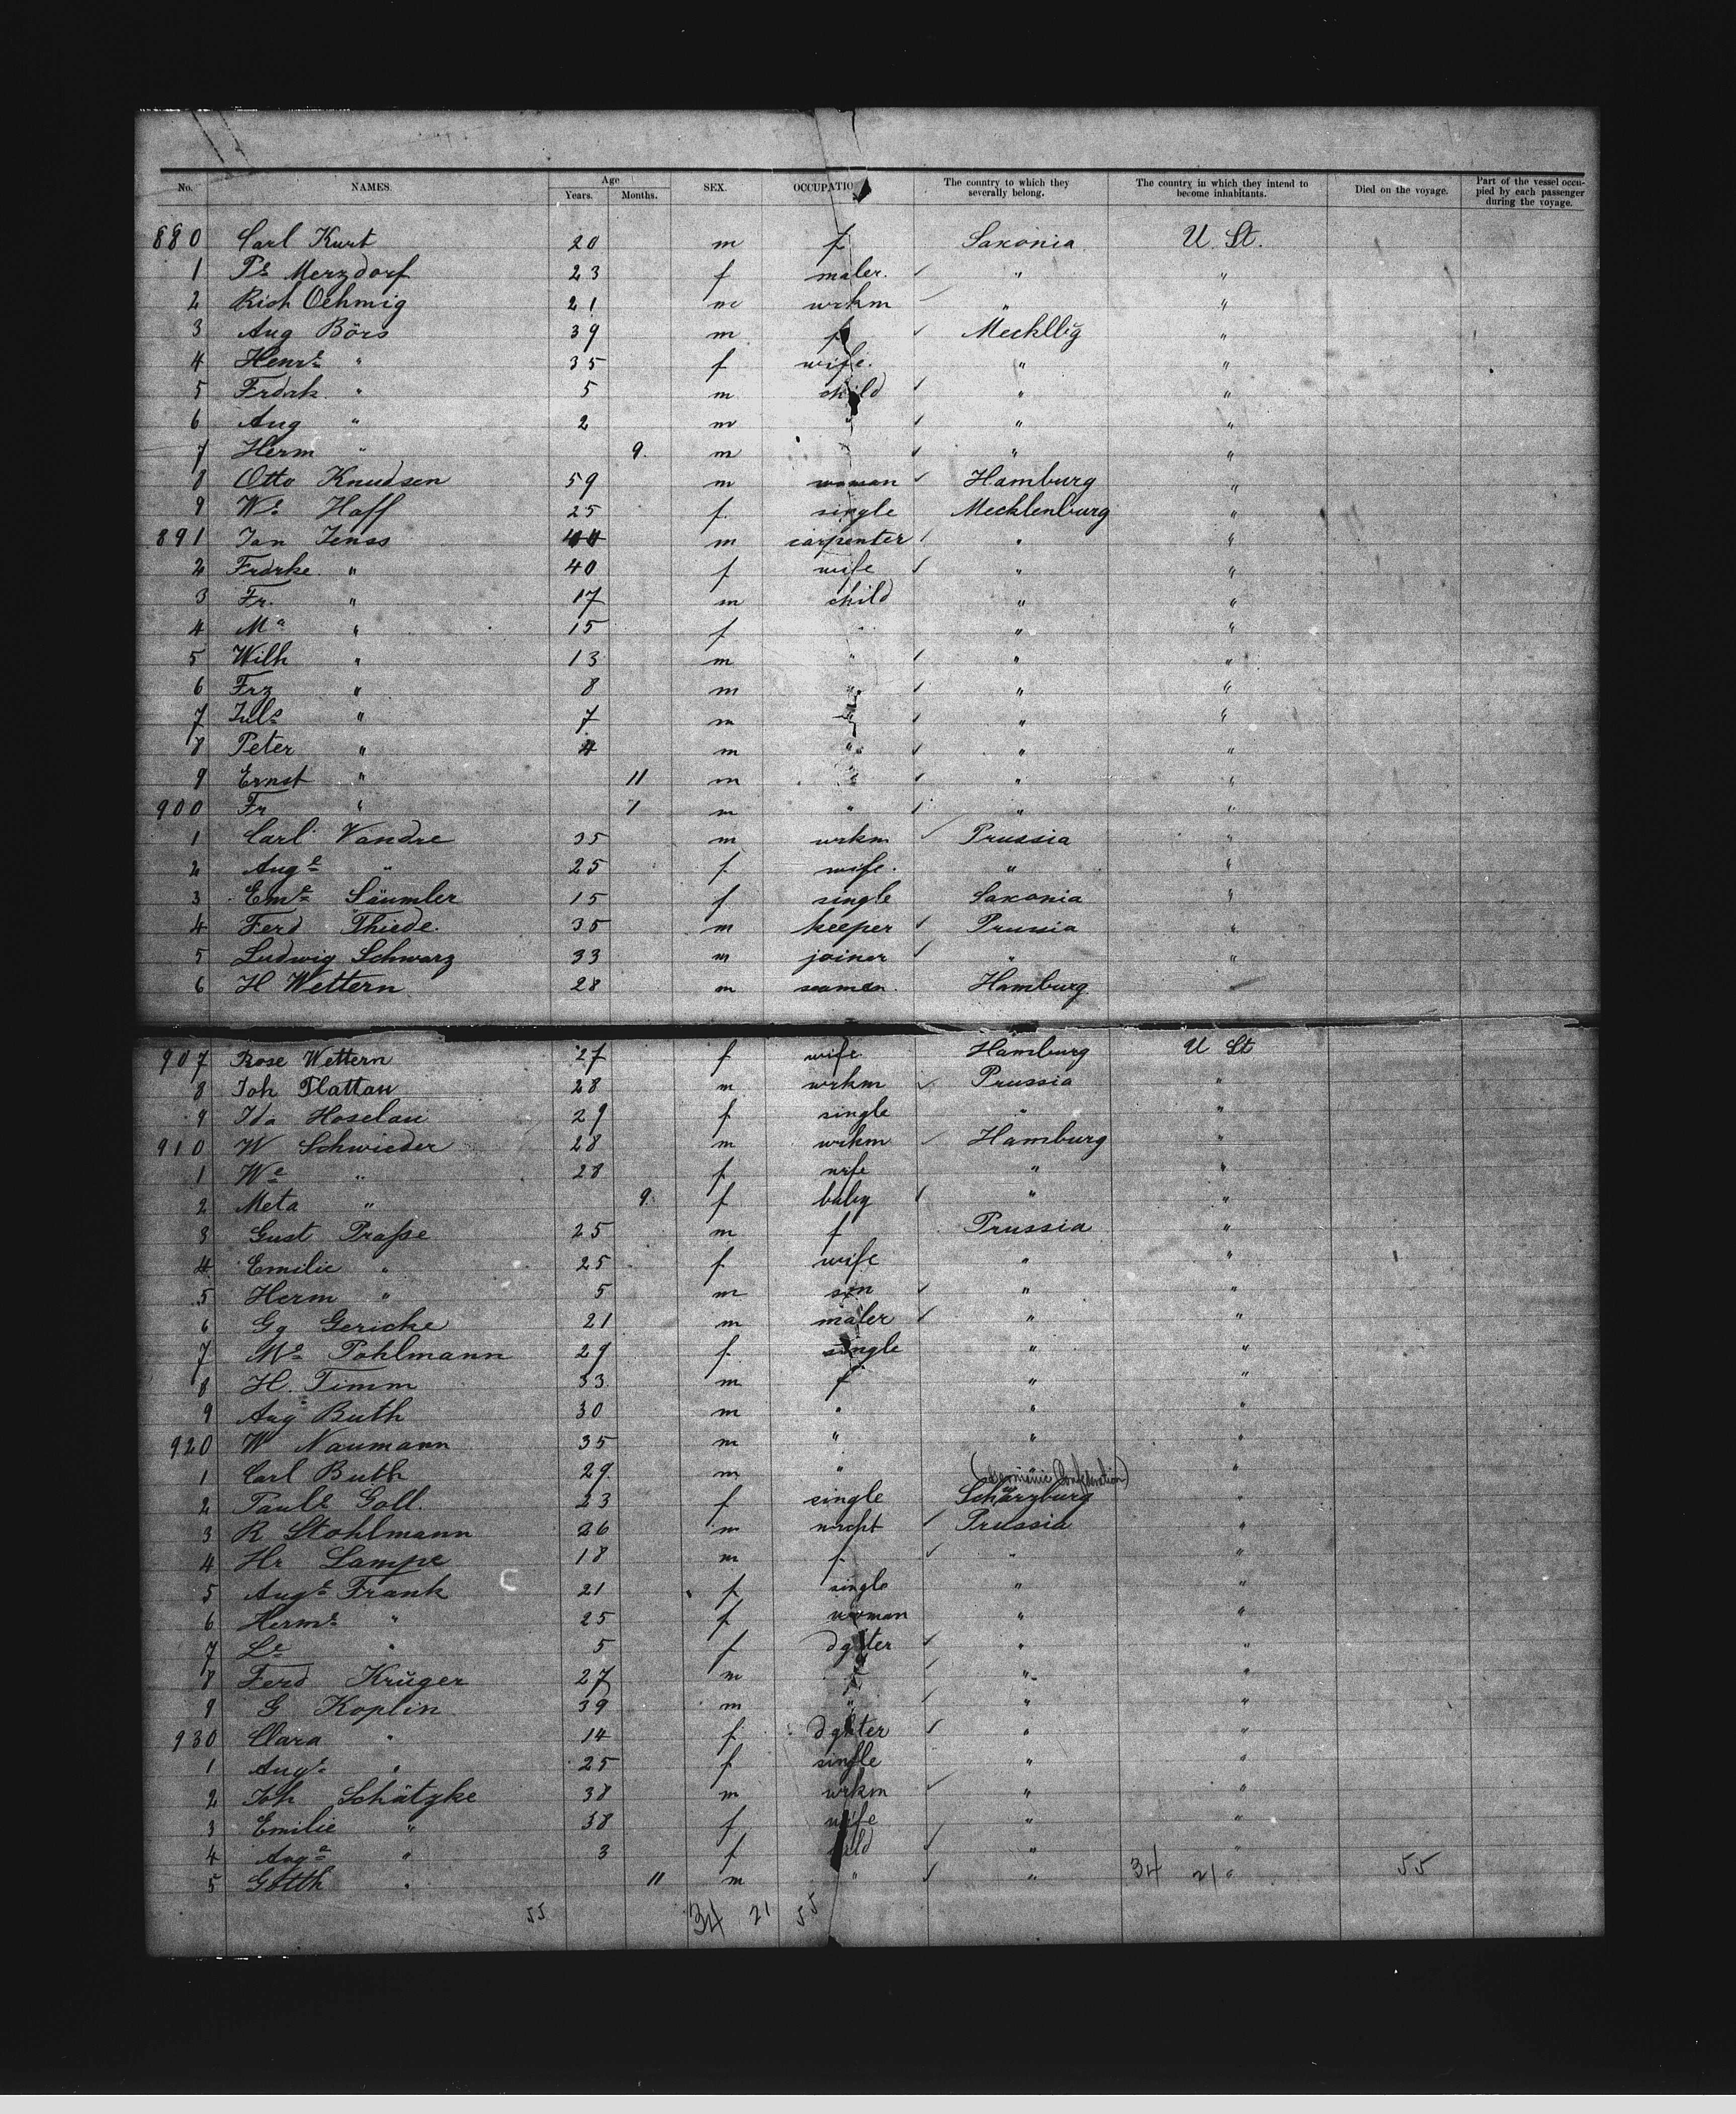 No. NAMES. Age Years. Months. SEX. OCCUPATIO The country to which they severally belong. The country in which they intend to become inhabitants. Died on the voyage. Part of the vessel occupied by each passenger during the voyage.
880 Carl Kurt 20 m f Saxonia U St.
1 Pe Merzdorf 23 f maler. " "
2 Rich Oehmig 21 m wrkm " "
3 Aug Börs 39 m f Meckllbg "
4 Henre " 35 f wife. " "
5 Frdrk. " 5 m child " "
6 Aug " 2 m " " "
7 Herm " 9. m " "
8 Otto Knudsen 59 m woman Hamburg "
9 We Haff 25 f. single Mecklenburg "
891 Jan Jenss m carpenter " "
2 Frdrke " 40 f wife " "
3 Fr. " 17 m child " "
4 Ma " 15 f " " "
5 Wilh " 13 m " " "
6 Frz " 8 m " " "
7 Juls " 7 m " " "
8 Peter " 4 m " " "
9 Ernst " 11 m " " "
900 Fr " 1 m " " "
1 Carl Vandre 35 m wrkm Prussia "
2 Auge " 25 f. wife. " "
3 Eme Säumler 15 f single Saxonia "
4 Ferd Thiede. 35 m keeper Prussia "
5 Ludwig Schwarz 33 m joiner " "
6 H Wettern 28 m seaman. Hamburg
907 Rose Wettern 27 f wife Hamburg U St
8 Joh Plattau 28 m wrkm Prussia "
9 Ida Hoselau 29 f single " "
910 W Schwieder 28 m wrkm Hamburg "
1 We " 28 f wife " "
2 Meta " 9. f baby " "
3 Gust Praße 25 m f Prussia "
4 Emilie " 25 f wife " "
5 Herm " 5 m son " "
6 Gg Gericke 21 m maler " "
7 Me Pohlmann 29 f. single " "
8 H. Timm 33 m f " "
9 Aug Buth 30 m " " "
920 W Naumann 35 m " " "
1 Carl Buth 29. m " (Germanic Confederation) "
2 Paule Goll. 23 f single Schwarzburg "
3 R Stohlmann 26 m mrcht Prussia "
4 Hr Lampe 18 m f " "
5 Auge Frank 21 f single " "
6 Herme " 25 f woman " "
7 Le " 5 f dghter " "
8 Ferd Krüger 27 m " "
9 G Koplin 39 m " " "
930 Clara " 14 f. dghter " "
1 Auge " 25 f single " "
2 Joh Schätzke 38 m wrkm " "
3 Emilie " 38 f wife " "
4 Auge " 3 f child " "
5 Gotth " 11 m " " 34 21 " 55
55 34 21 55